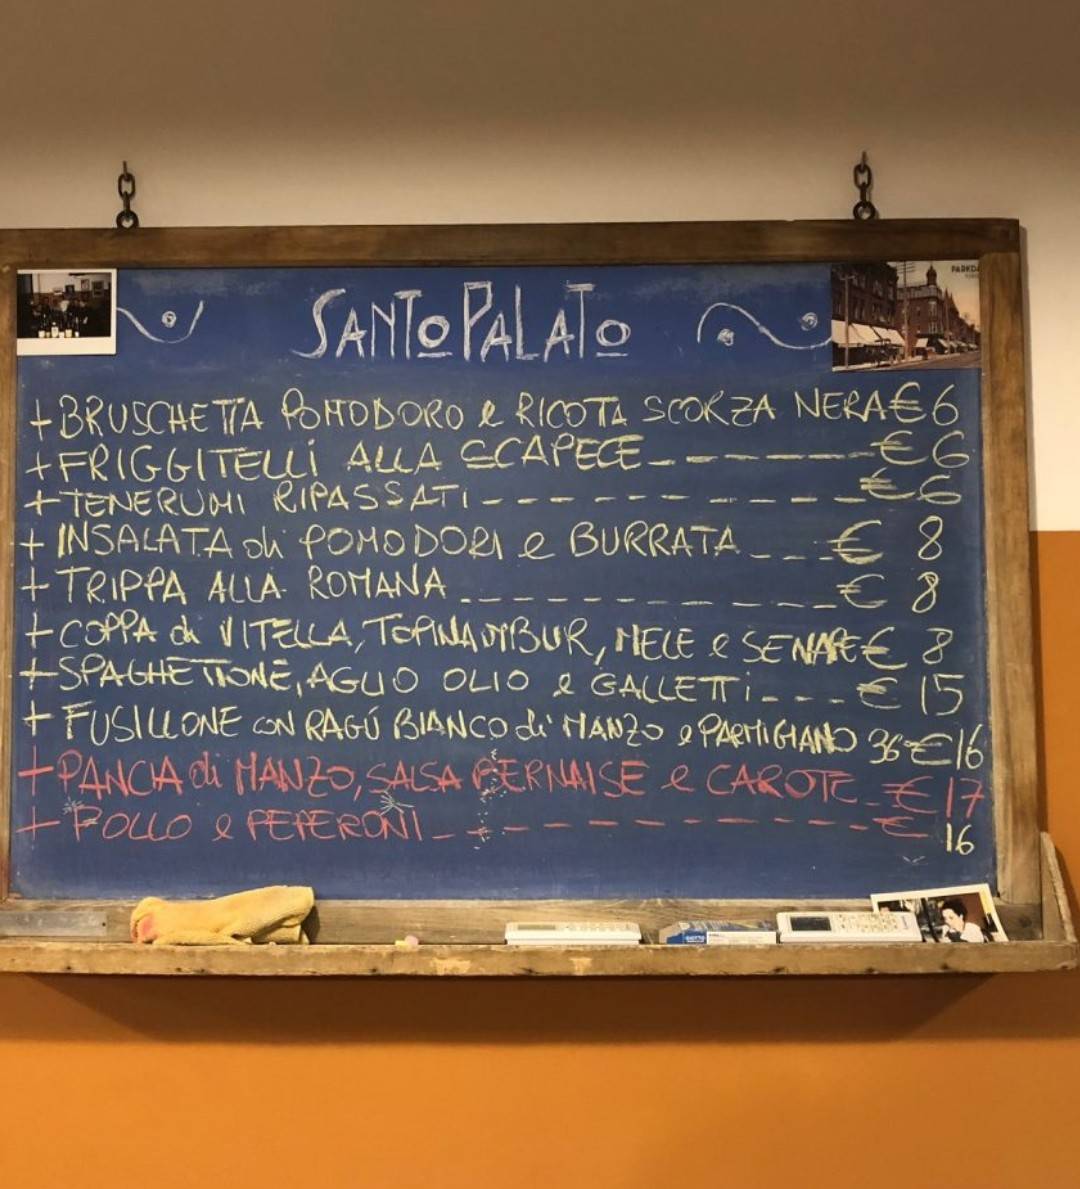 SANTO PALATO
PARKDA
+ BRUSCHETTA POMODORO e RICOTTA SCORZA NERA € 6
+ FRIGGITELLI ALLA SCAPECE - - - - - - - € 6
+ TENERUMI RIPASSATI - - - - - - - - - € 6
+ INSALATA di POMODORI e BURRATA - - - € 8
+ TRIPPA ALLA ROMANA - - - - - - - - - € 8
+ COPPA di VITELLA, TOPINAMBUR, MELE e SENAPE € 8
+ SPAGHETTONE, AGLIO OLIO e GALLETTI - - - € 15
+ FUSILLONE CON RAGÚ BIANCO di MANZO e PARMIGIANO 36 € 16
+ PANCIA di MANZO, SALSA BERNAISE e CAROTE - € 17
+ POLLO e PEPERONI - - - - - - - - - - - € 16